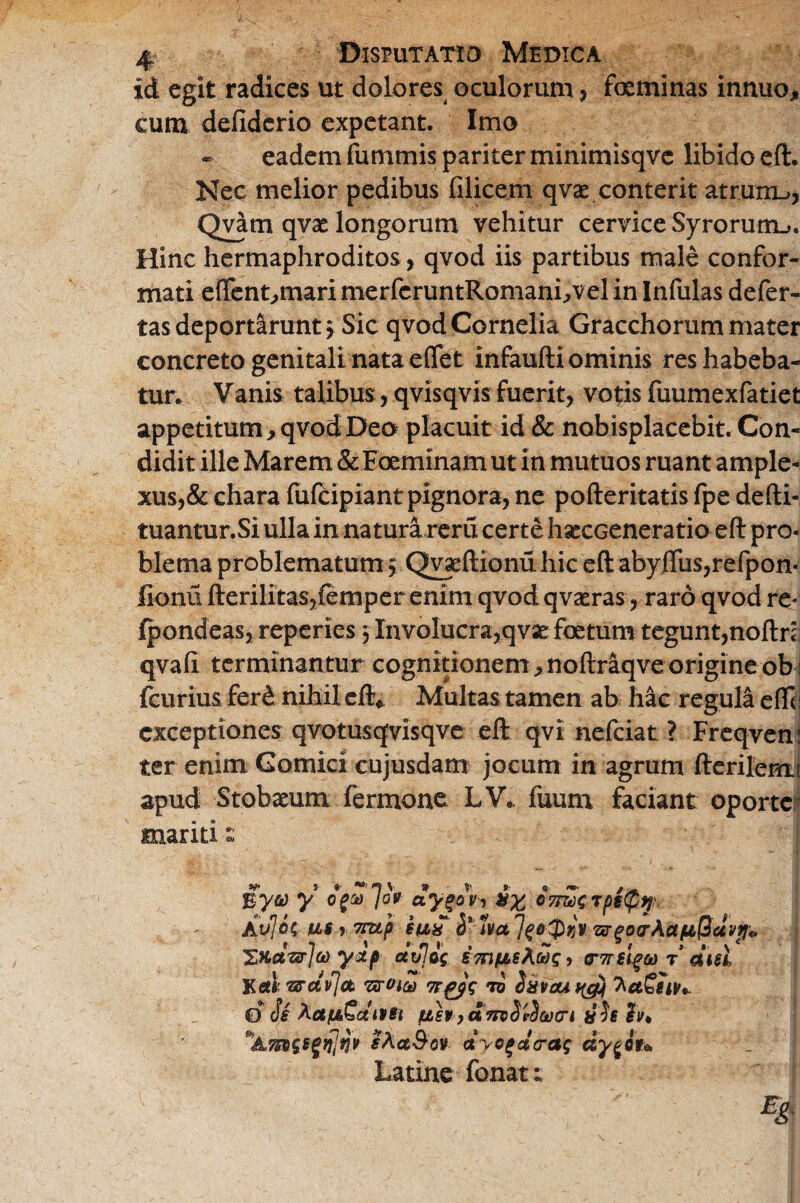 4 DISPUTATIO MEDICA
id egit radices ut dolores oculorum, fœminas innuo,
cum deſiderio expetant. Imo
- eadem ſummis pariter minimisqve libido eſt.
Nec melior pedibus ſilicem qvæ conterit atrum,
Qvàm qvæ longorum vehitur cervice Syrorum.
Hinc hermaphroditos, qvod iis partibus malè confor-
mati eſſent, mari merſeruntRomani, vel in Inſulas deſer-
tas deportârunt; Sic qvod Cornelia Gracchorum mater
concreto genitali nata eſſet infauſti ominis res habeba-
tur. Vanis talibus, qvisqvis fuerit, votis ſuum exſatiet
appetitum, qvod Deo placuit id & nobis placebit. Con-
didit ille Marem & Fœminam ut in mutuos ruant ample-
xus, & chara ſuſcipiant pignora, ne poſteritatis ſpe deſti-
tuantur. Si ulla in naturâ rerũ certè hæc Generatio eſt pro-
blema problematum; Qvæſtionũ hic eſt abyſſus, reſpon-
ſionũ ſterilitas, ſemper enim qvod qværas, rarò qvod re-
ſpondeas, reperies; Involucra, qvæ fœtum tegunt, noſtrĩ
qvaſi terminantur cognitionem, noſtrâqve origine ob
ſcurius ferè nihil eſt. Multas tamen ab hâc regulâ eſſe
exceptiones qvotusqvisqve eſt qvi neſciat? Freqven
ter enim Comici cujusdam jocum in agrum ſterilem
apud Stobæum ſermone LV. ſuum faciant oporte
mariti:
Ἐγὼ γ' ὁρῶ τὸν ἀγρὸν, ὐχ ὅπως τρέφη
Αὐτός με, παρ ἐμῦ δ' ἵνα τροφὴν προσλαμβάνη.
Σκάπτω γὰρ αὐτὸς ἐπιμελῶς, σπείρω τ' ἀεὶ
Καὶ πάντα ποιῶ πρὸς τὸ δῦναι καὶ λαβεῖν.
Ὁ δὲ λαμβάνει μὲν, ἀποδίδωσι ὐδὲ ἕν.
Ἀποστερητὴν ἔλαθον ἀγοράσας ἀγρόν.
Latine ſonat:
Eg